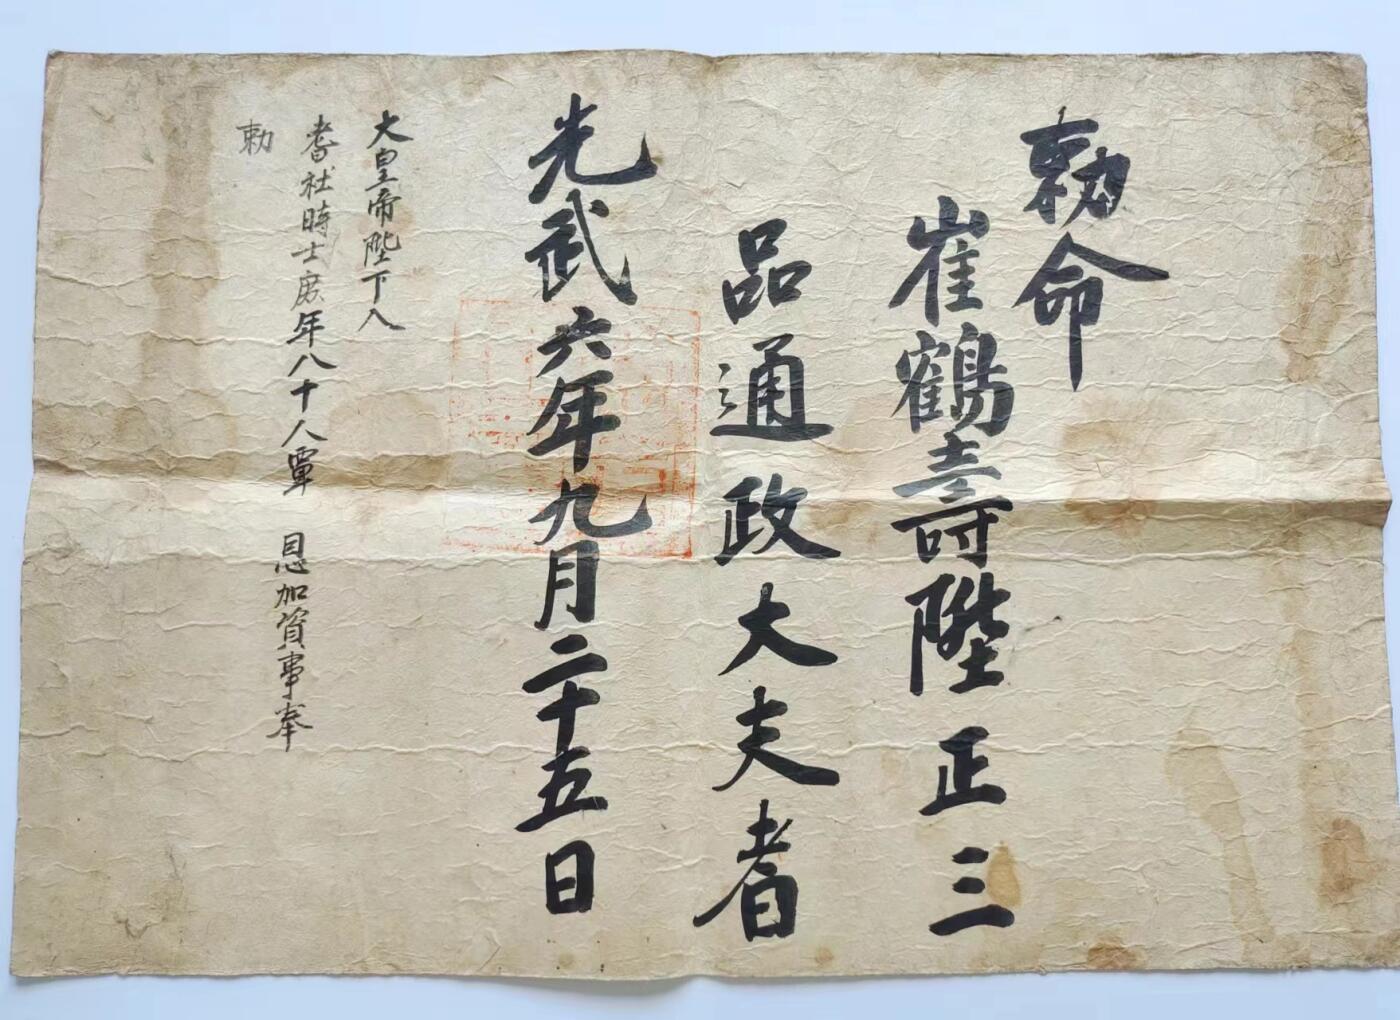 勅命
崔鶴壽陞正三
品通政大夫者
光武六年九月二十五日
大皇帝陛下入
耆社時士庶年八十人覃 恩加資事奉
勅